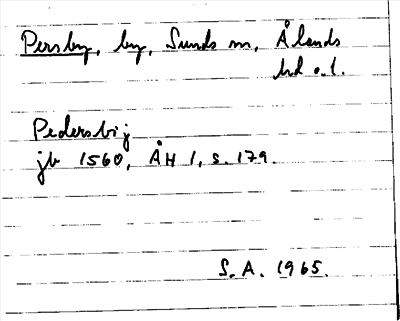 Persby, by, Sunds sn, Ålands
hd o.l.
Pedersbij
jb 1560, ÅH 1, s. 179.
S. A. 1965.